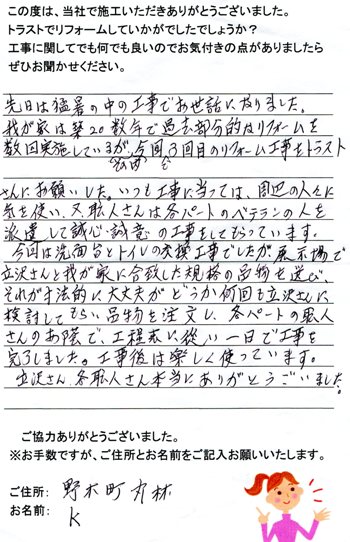 この度は、当社で施工いただきありがとうございました。
トラストでリフォームしていかがでしたでしょうか？
工事に関してでも何でも良いのでお気付きの点がありましたら
ぜひお聞かせください。
先日は猛暑の中の工事でお世話になりました。
我が家は築20数年で過去部分的なリフォームを
数回実施しているが、今回3回目のリフォーム工事をトラスト
さんにお願いした。いつも工事に当っては、周辺の人々に
気を使い、又、職人さんは各パートのベテランの人を
派遣して誠心・誠意の工事をしてもらっています。
今回は洗面台とトイレの交換工事でしたが展示場で
立沢さんと我が家に合致した規格の品物を選び、
それが寸法的に大丈夫かどうか何回も立沢さんに
検討してもらい品物を注文し、各パートの職人
さんのお陰で、工程表に従い一日で工事を
完了しました。工事後は楽しく使っています。
立沢さん、各職人さん本当にありがとうございました。
ご協力ありがとうございました。
※お手数ですが、ご住所とお名前をご記入お願いいたします。
ご住所：野木町丸林
お名前：K